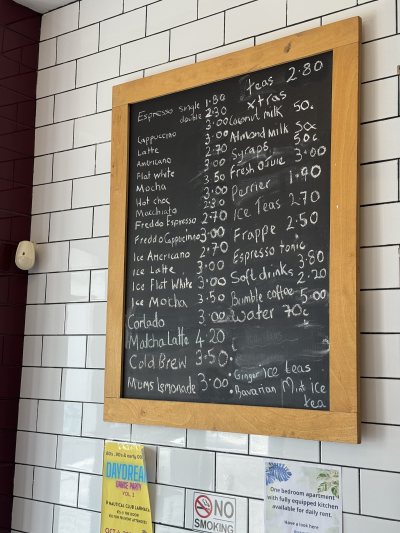 Espresso single 1.80
double 2.30
Cappuccino 3.00
Latte 3.00
Americano 2.70
Flat white 3.00
Mocha 3.50
Hot choc 3.00
Macchiato 2.30
Freddo Espresso 2.70
Freddo Cappuccino 3.00
Ice Americano 2.70
Ice Latte 3.00
Ice Flat White 3.00
Ice Mocha 3.50
Cortado 3.00
Matcha Latte 4.20
Cold Brew 3.50
Mums lemonade 3.00
teas 2.80
xtras
Coconut milk 50.
Almond milk 50c
Syraps 50c
Fresh Juic 3.00
Perrier 1.40
Ice Teas 2.70
Frappe 2.50
Espresso tonic 3.80
Soft drinks 2.20
Bumble coffee 5.00
Water 70c
Ginger ice teas
Bavarian Mint ice
tea
DAYDREA
DANCE PARTY
VOL. 2
NAUTICAL CLUB LARNACA
NO
SMOKING
One bedroom apartment
with fully equipped kitchen
available for daily rent.
Have a look here